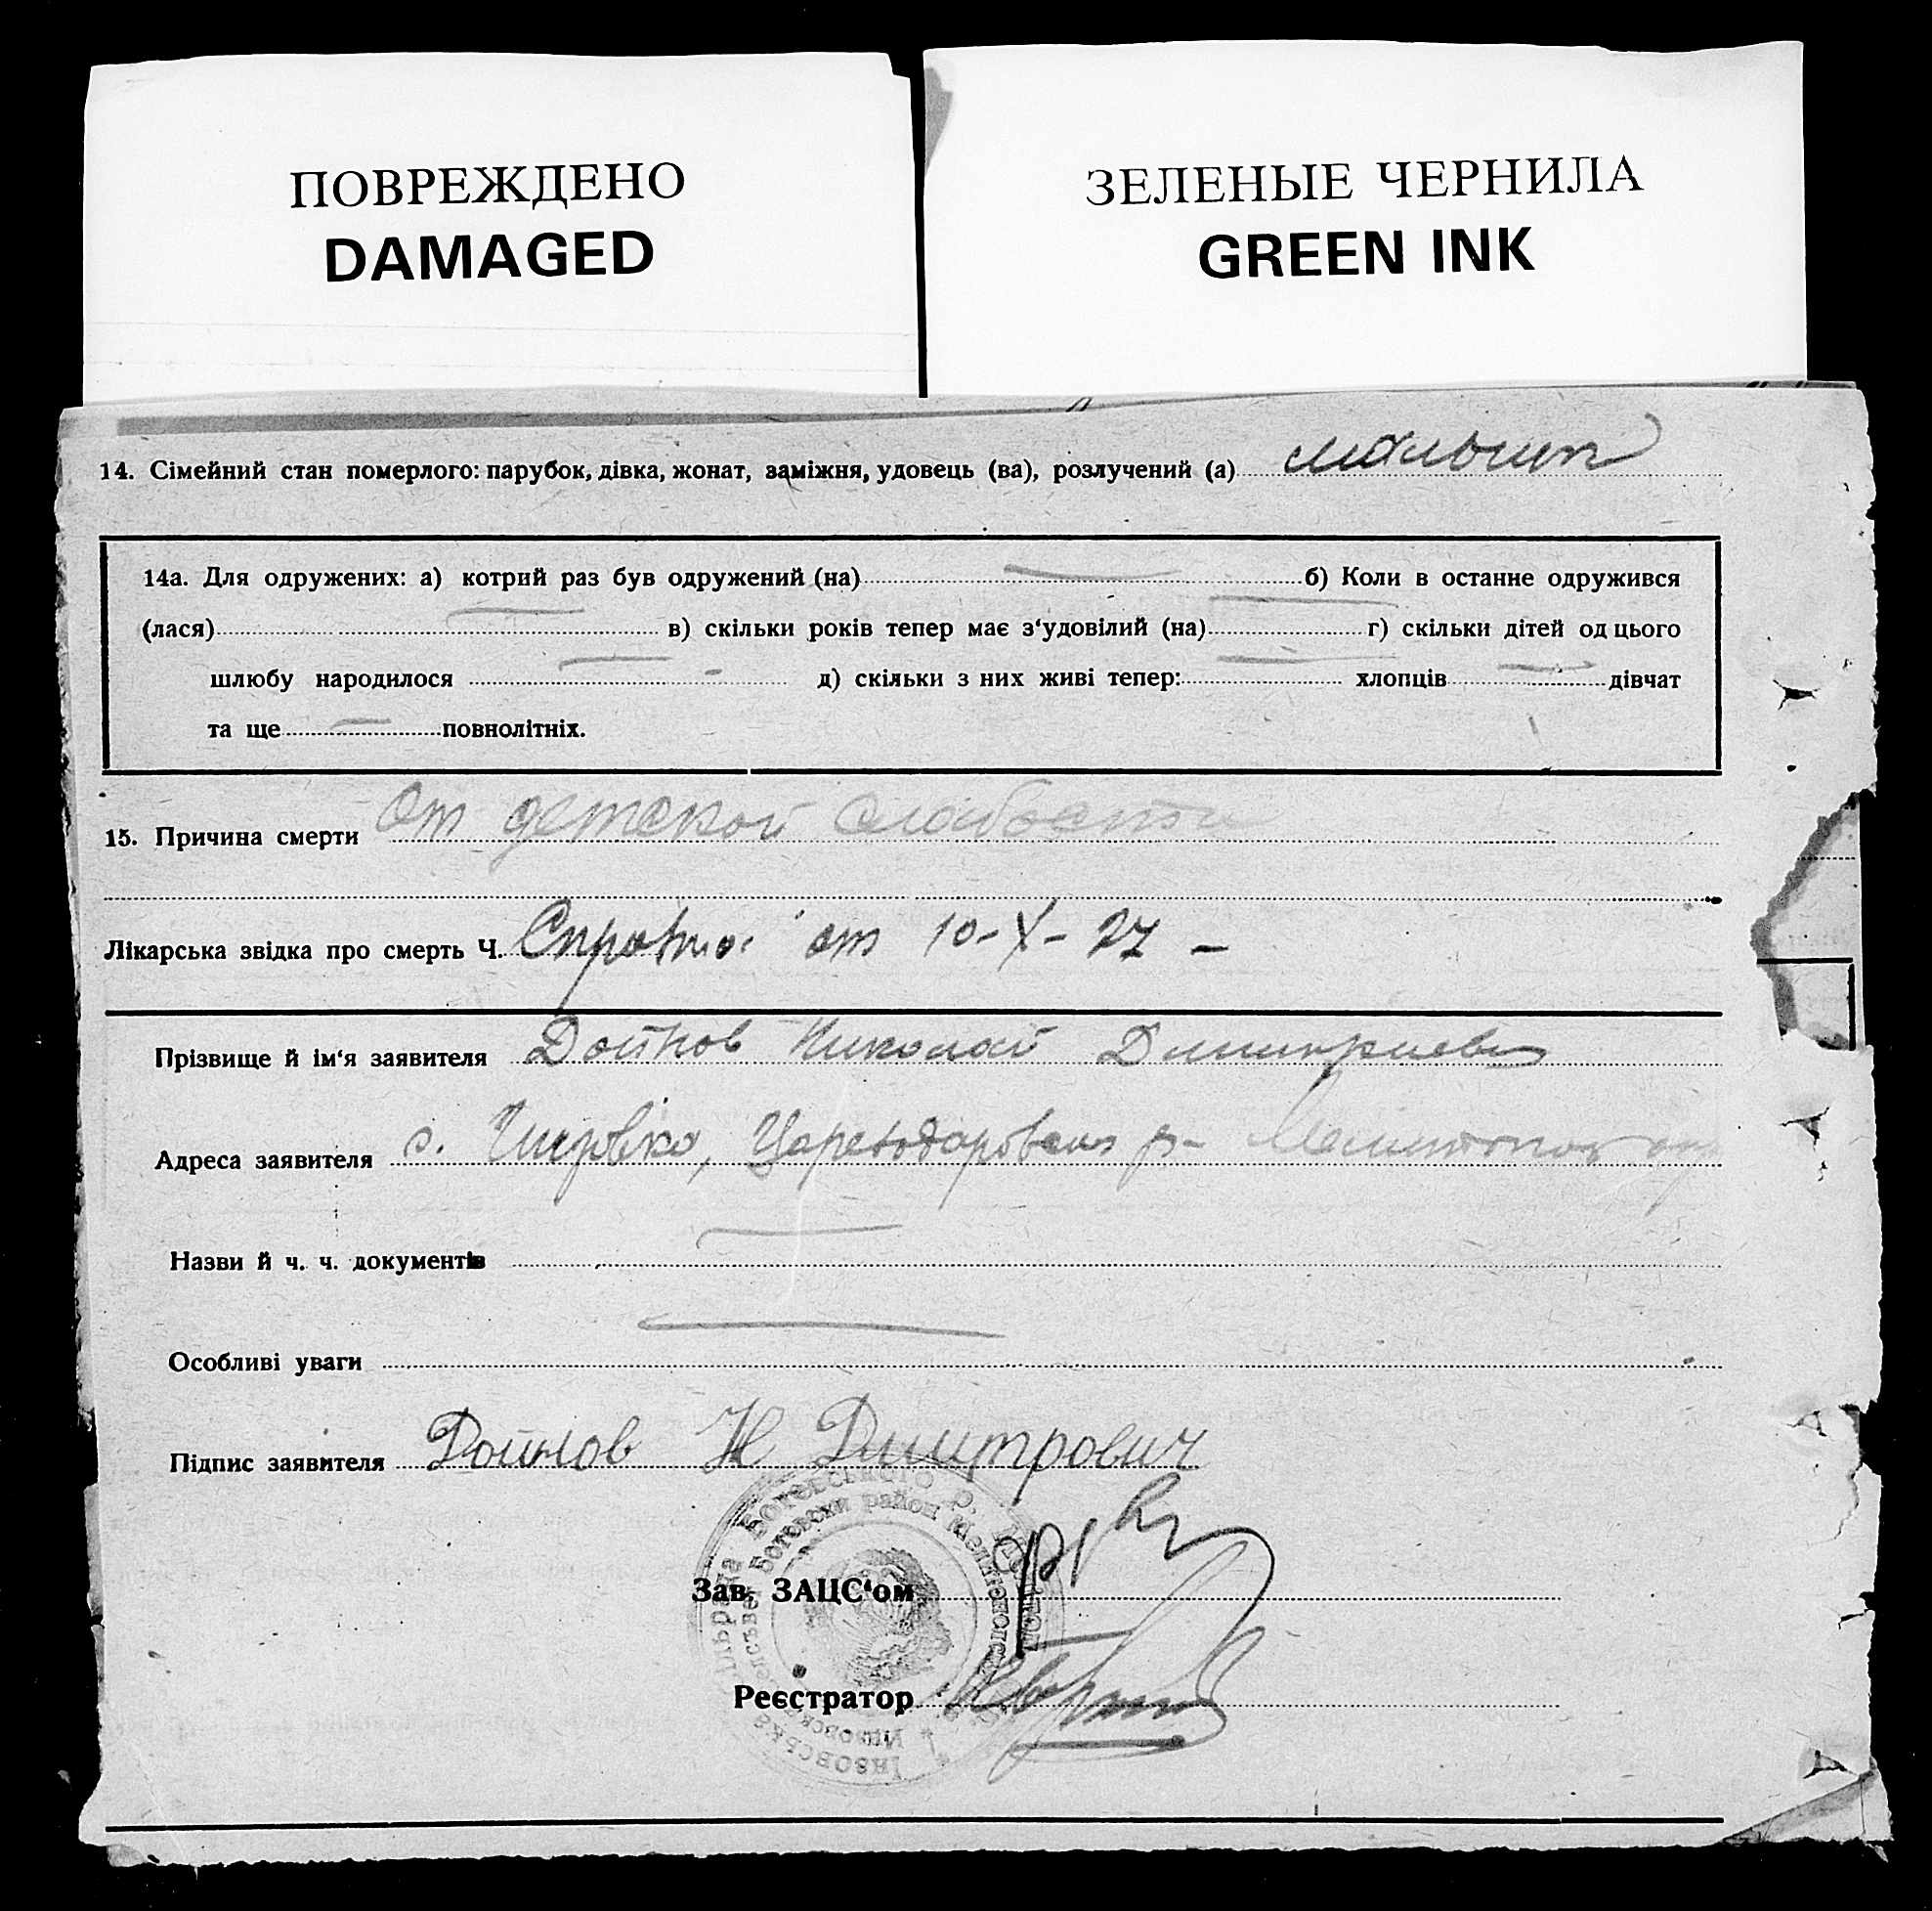 ПОВРЕЖДЕНО
DAMAGED
ЗЕЛЕНЫЕ ЧЕРНИЛА
GREEN INK
14. Сімейний стан померлого: парубок, дівка, жонат, заміжня, удовець (ва), розлучений (а)
14а. Для одружених: а) котрий раз був одружений (на) б) Коли в останне одружився
(лася) в) скільки років тепер має з‘удовілий (на) г) скільки дітей од цього
шлюбу народилося д) скільки з них живі тепер: хлопців дівчат
та ще повнолітніх.
15. Причина смерти От детской слабости
Лікарська звідка про смерть Ч. Справка от 10-X-27 –
Прізвище й ім‘я заявителя Дойнов Николай Димитриевич
Адреса заявителя с. Цареводаровского р-
Назви й ч. ч. документів
Особливі уваги
Підпис заявителя Дойнов Н Дмитрович
Зав. ЗАЦС‘ом
Реєстратор